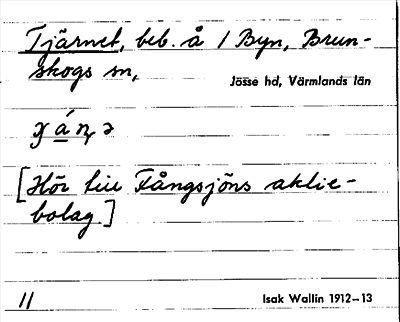 Tjärnet, beb. å 1 Byn, Brun-
skogs sn,
Jösse hd, Värmlands län
[Hör till Fångsjöns aktie-
bolag]
11
Isak Wallin 1912-13